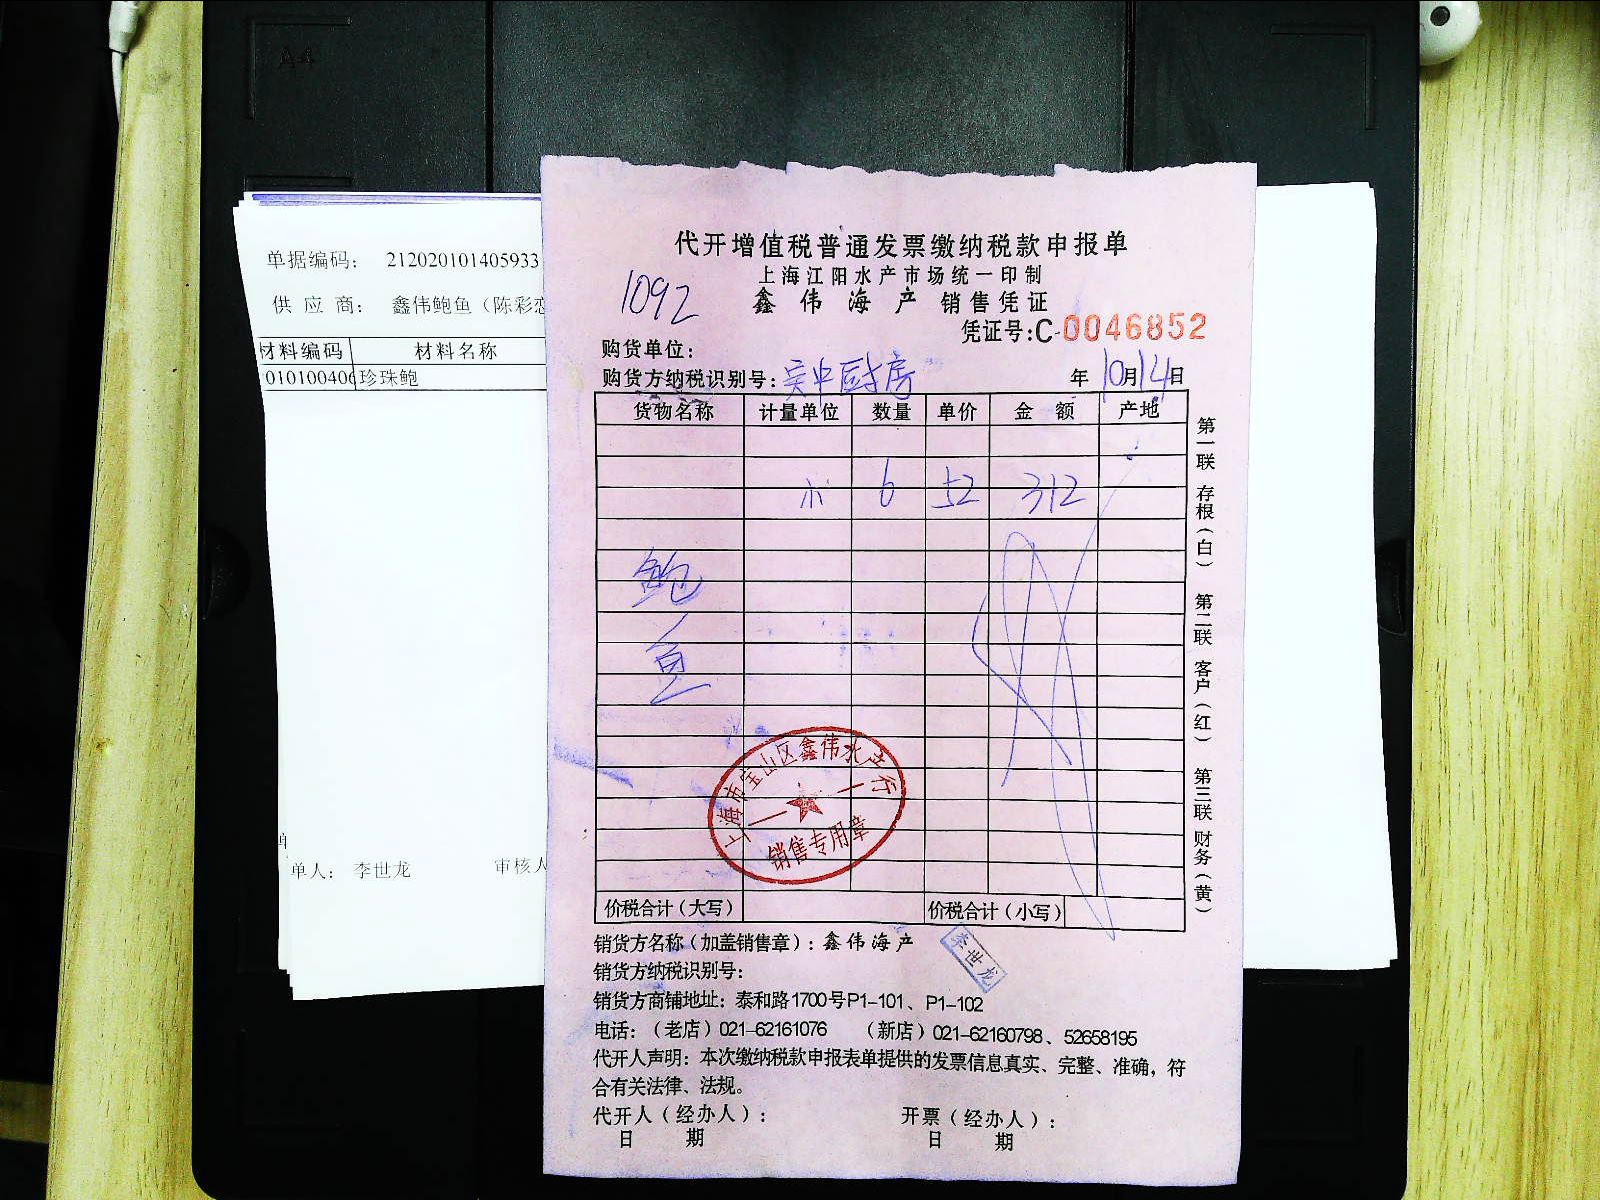 A4
单据编码： 212020101405933
供 应 商： 鑫伟鲍鱼（陈彩恋
材料编码 材料名称
010100406 珍珠鲍
单人： 李世龙 审核人
代开增值税普通发票缴纳税款申报单
上海江阳水产市场统一印制
1092
鑫 伟 海 产 销售凭证
凭证号:C-0046852
购货单位：
购货方纳税识别号：吴中厨房 年10月14日
货物名称 计量单位 数量 单价 金 额 产地
小 6 52 312
鲍
鱼
上海市宝山区鑫伟水产行
销售专用章
价税合计（大写） 价税合计（小写）
销货方名称（加盖销售章）：鑫 伟 海 产
李世龙
销货方纳税识别号：
销货方商铺地址：泰和路1700号P1-101、P1-102
电话：（老店）021-62161076 （新店）021-62160798、52658195
代开人声明：本次缴纳税款申报表单提供的发票信息真实、完整、准确，符
合有关法律、法规。
代开人（经办人）： 开票（经办人）：
日 期 日 期
第一联 存根（白） 第二联 客户（红） 第三联 财务（黄）